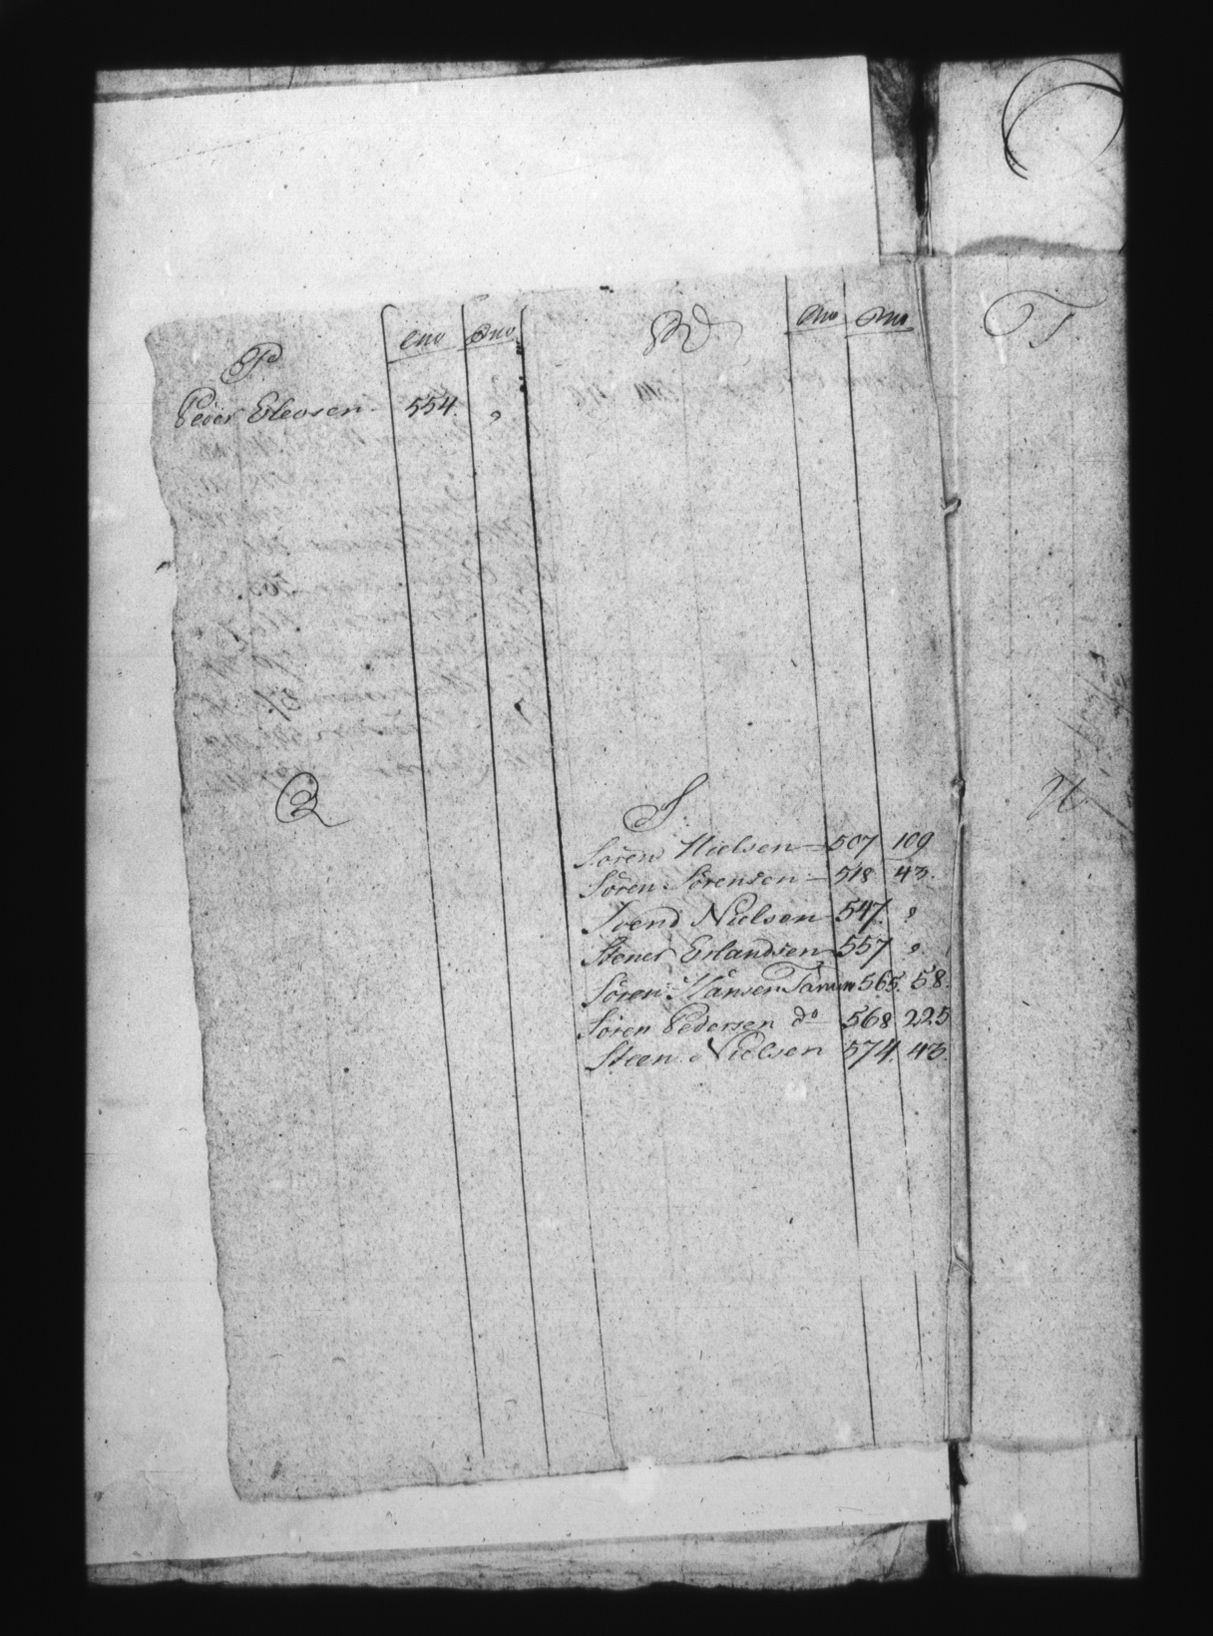 P
Peder Elevsen 554. ,
Q
R
S
Søren Nielsen 507 109
Søren Sørensen 518 43.
Svend Nielsen 547. ,
Stener Erlandsen 557 ,
Søren Hansen Tanum 565. 58.
Søren Pedersen do 568 225
Steen Nielsen 574. 43.
T.
U